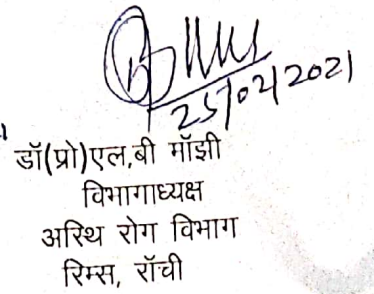 25/02/2021
डॉ(प्रो)एल,बी मॉझी
विभागाध्यक्ष
अस्थि रोग विभाग
रिम्स, रॉची